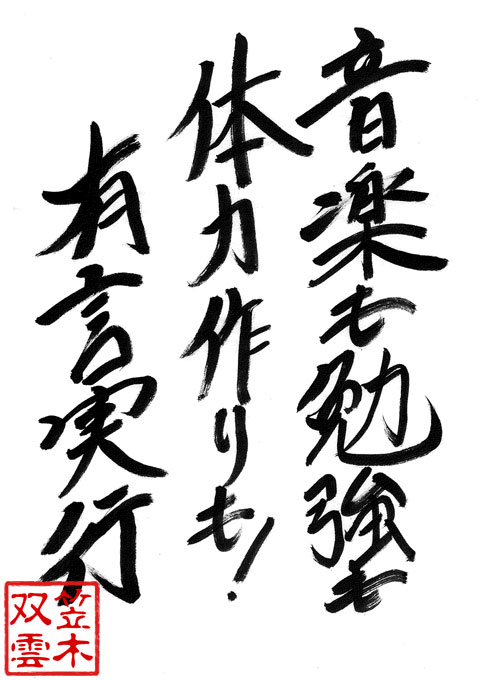 音楽も勉強も
体力作りも!
有言実行
笠木
双雲